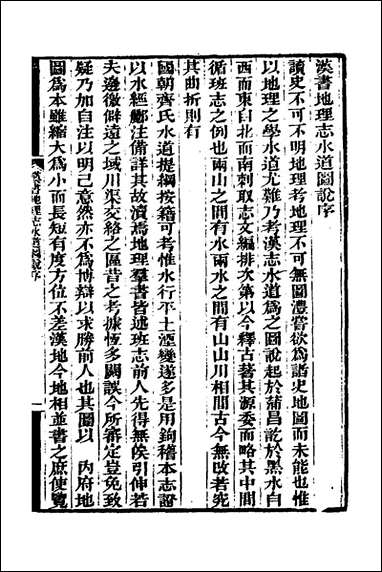 漢書地理志水道圖說序
讀史不可不明地理考地理不可無圖澧嘗欲爲諸史地圖而未能也惟
以地理之學水道尤難乃考漢志水道爲之圖說起於蒲昌訖於黑水自
西而東自北而南刺取志文編排次第以今釋古著其源委而略其中間
循班志之例也兩山之間有水兩水之間有山山川相間古今無改若究
其曲折則有
國朝齊氏水道提綱按籍可考惟水行平土湮變遂多是用鉤稽本志證
以水經酈注備詳其故瀆焉地理羣書皆述班志前人先得無俟引伸若
夫邊徼僻遠之域川渠交絡之區昔之考據恆多闕誤今所審定豈免致
疑乃加自注以明己意然亦不爲博辯以求勝前人也其圖以 內府地
圖爲本雖縮大爲小而長短有度方位不差漢地今地相並書之庶便覽
漢書地理志水道圖說序
一